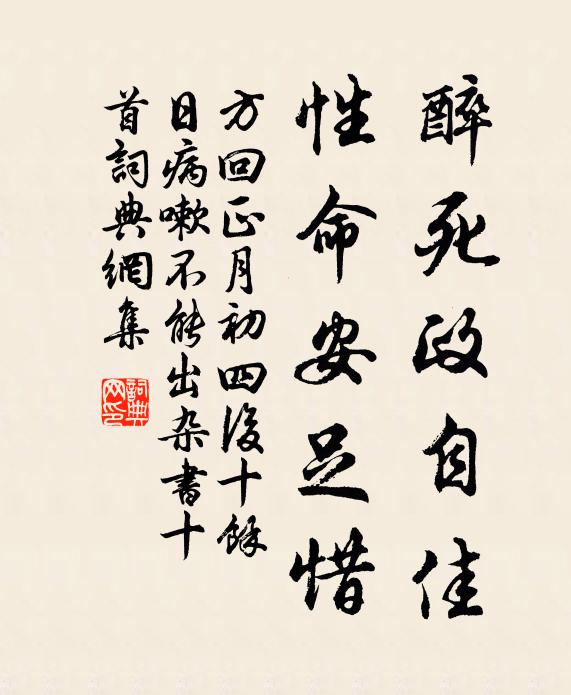 醉死政自佳
性命安足惜
方回正月初四后十馀
日病嗽不能出杂書十
首詞典網集
詞典
网印